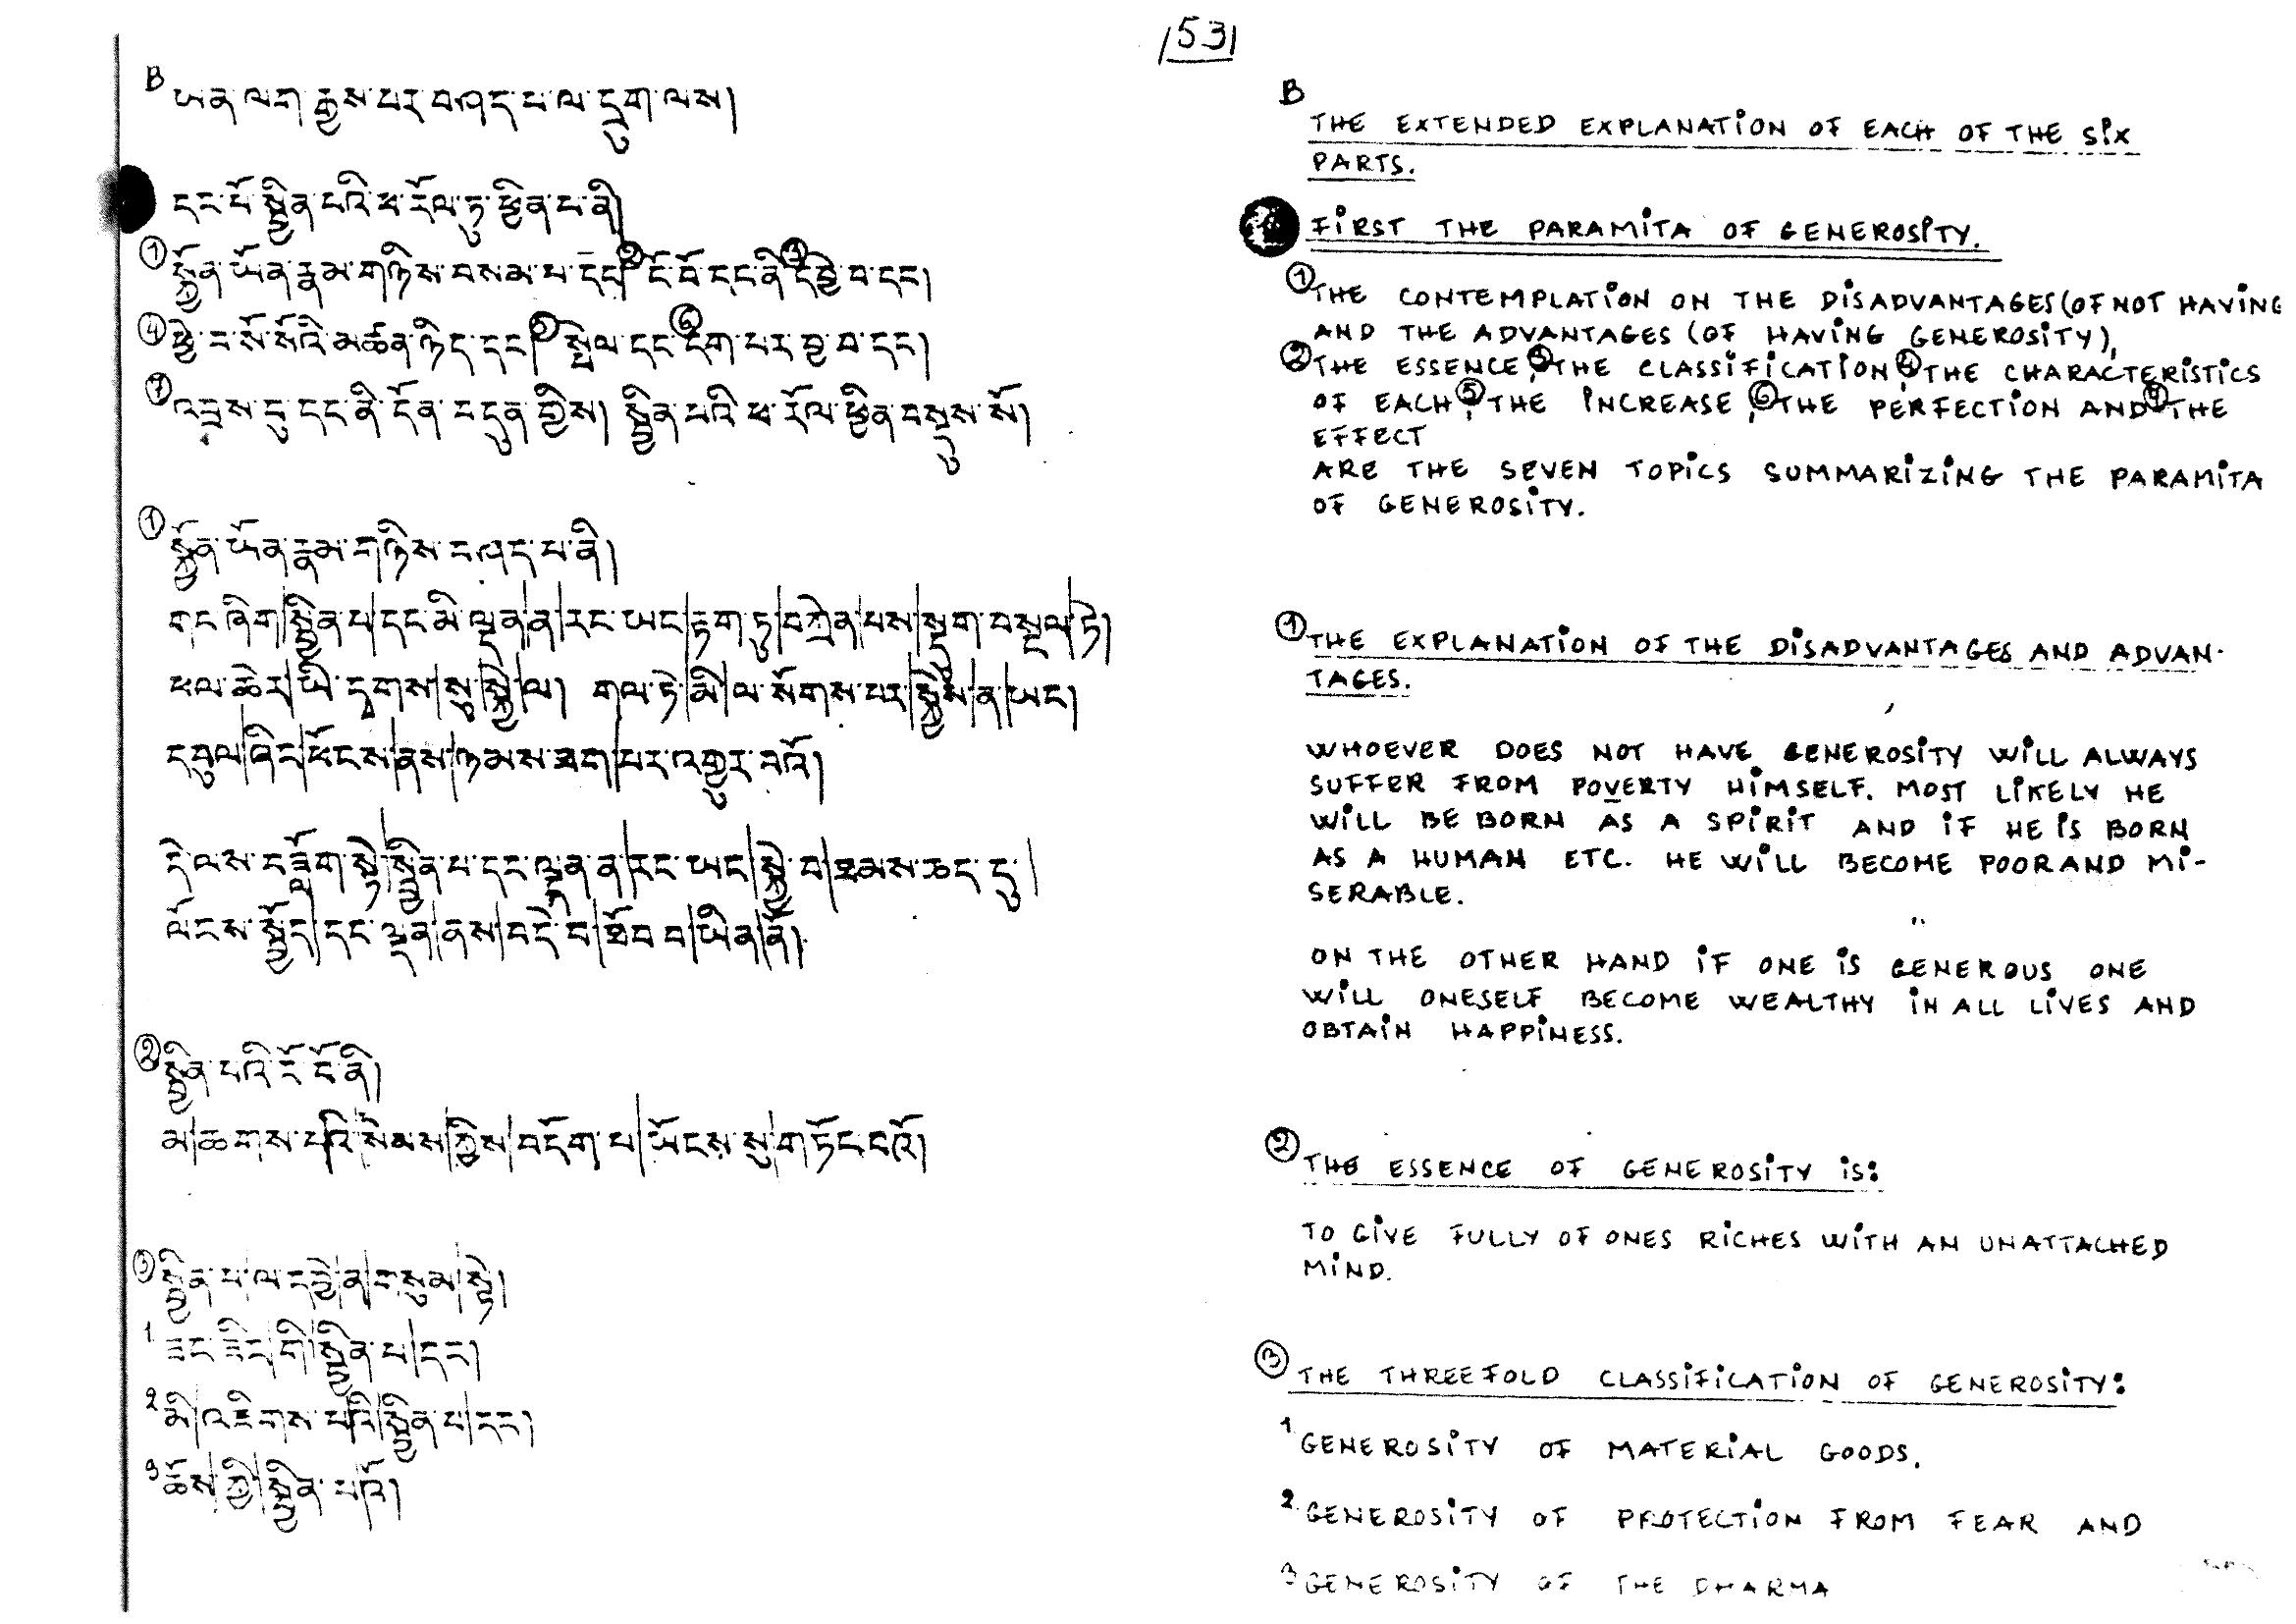 153
B
ཡན་ལག་རྒྱས་པར་བཤད་པ་ལ་དྲུག་ལས།
དང་པོ་སྦྱིན་པའི་ཕ་རོལ་ཏུ་ཕྱིན་པ་ནི།
① སྐྱོན་ཡོན་རྣམ་གཉིས་བསམ་པ་དང། ② ངོ་བོ་དང་ནི་ ③ དབྱེ་བ་དང།
④ ཕྱེ་བ་སོ་སོའི་མཚན་ཉིད་དང། ⑤ སྤེལ་དང་ ⑥ དག་པར་བྱ་བ་དང།
⑦ འབྲས་བུ་དང་ནི་དོན་བདུན་གྱིས། སྦྱིན་པའི་ཕ་རོལ་ཕྱིན་བསྡུས་སོ།
① སྐྱོན་ཡོན་རྣམ་གཉིས་བཤད་པ་ནི།
གང་ཞིག་སྦྱིན་པ་དང་མི་ལྡན་ན་རང་ཡང་རྟག་ཏུ་བཀྲེན་པས་སྡུག་བསྔལ་ཏེ།
ཕལ་ཆེར་ཡི་དྭགས་སུ་སྐྱེ་ལ། གལ་ཏེ་མི་ལ་སོགས་པར་སྐྱེས་ན་ཡང།
དབུལ་ཞིང་ཕོངས་ནས་ཉམས་ཐག་པར་འགྱུར་བའོ།
དེ་ལས་བཟློག་སྟེ་སྦྱིན་པ་དང་ལྡན་ན་རང་ཡང་སྐྱེ་བ་ཐམས་ཅད་དུ།
ལོངས་སྤྱོད་དང་ལྡན་ནས་བདེ་བ་ཐོབ་བ་ཡིན་ནོ།
② སྦྱིན་པའི་ངོ་བོ་ནི།
མ་ཆགས་པའི་སེམས་ཀྱིས་བདོག་པ་ཡོངས་སུ་གཏོང་བའོ།
③ སྦྱིན་པ་ལ་དབྱེ་ན་གསུམ་སྟེ།
1 ཟང་ཟིང་གི་སྦྱིན་པ་དང།
2 མི་འཇིགས་པའི་སྦྱིན་པ་དང།
3 ཆོས་ཀྱི་སྦྱིན་པའོ།
B
THE EXTENDED EXPLANATION OF EACH OF THE SIX
PARTS.
FIRST THE PARAMITA OF GENEROSITY.
① THE CONTEMPLATION ON THE DISADVANTAGES (OF NOT HAVING
AND THE ADVANTAGES (OF HAVING GENEROSITY),
② THE ESSENCE, ③ THE CLASSIFICATION, ④ THE CHARACTERISTICS
OF EACH, ⑤ THE INCREASE, ⑥ THE PERFECTION AND ⑦ THE
EFFECT
ARE THE SEVEN TOPICS SUMMARIZING THE PARAMITA
OF GENEROSITY.
① THE EXPLANATION OF THE DISADVANTAGES AND ADVAN-
TAGES.
WHOEVER DOES NOT HAVE GENEROSITY WILL ALWAYS
SUFFER FROM POVERTY HIMSELF. MOST LIKELY HE
WILL BE BORN AS A SPIRIT AND IF HE IS BORN
AS A HUMAN ETC. HE WILL BECOME POOR AND MI-
SERABLE.
ON THE OTHER HAND IF ONE IS GENEROUS ONE
WILL ONESELF BECOME WEALTHY IN ALL LIVES AND
OBTAIN HAPPINESS.
② THE ESSENCE OF GENEROSITY IS:
TO GIVE FULLY OF ONES RICHES WITH AN UNATTACHED
MIND.
③ THE THREEFOLD CLASSIFICATION OF GENEROSITY:
1 GENEROSITY OF MATERIAL GOODS,
2 GENEROSITY OF PROTECTION FROM FEAR AND
3 GENEROSITY OF THE DHARMA